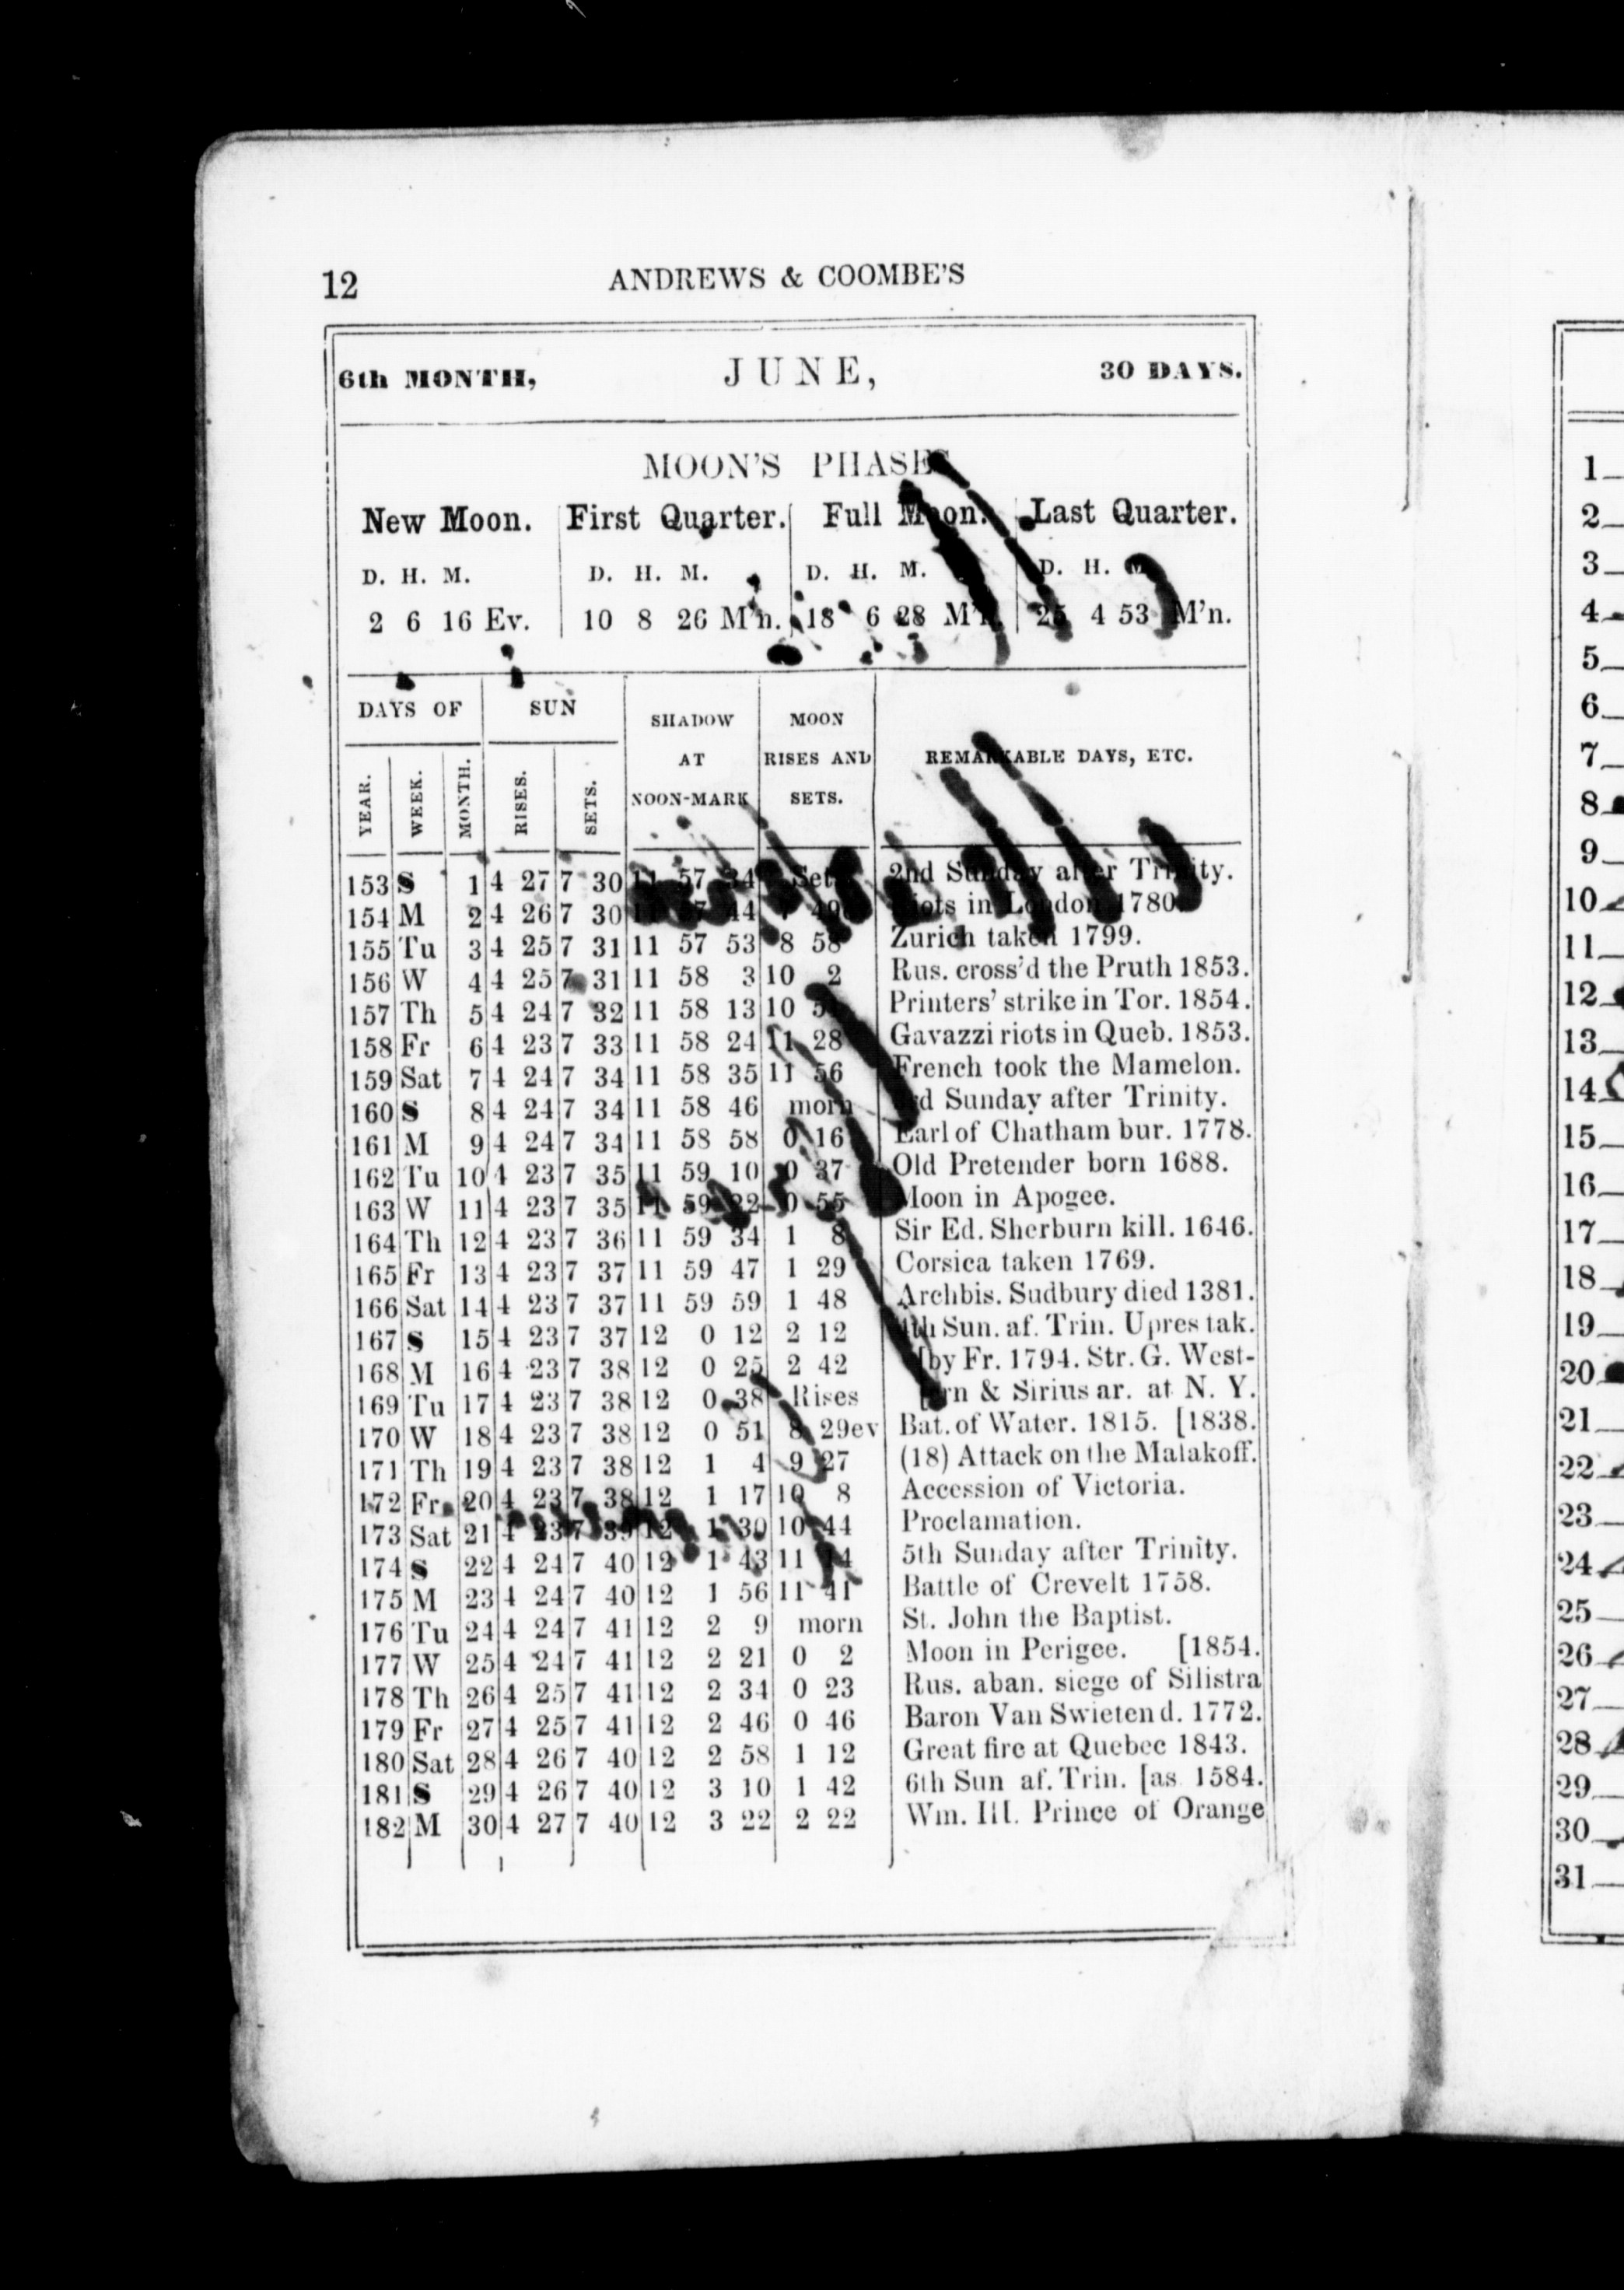 12 ANDREWS & COOMBE'S
6th MONTH, JUNE, 30 DAYS.
MOON'S PHASES
New Moon. First Quarter. Full Moon. Last Quarter.
D. H. M. D. H. M. D. H. M. D. H. M.
2 6 16 Ev. 10 8 26 M'n. 18 6 28 M'n. 25 4 53 M'n.
DAYS OF SUN SHADOW AT NOON-MARK MOON RISES AND SETS. REMARKABLE DAYS, ETC.
YEAR. WEEK. MONTH. RISES. SETS.
153 S 1 4 27 7 30 11 57 34 Sets 2nd Sunday after Trinity.
154 M 2 4 26 7 30 11 57 44 7 49 Riots in London 1780.
155 Tu 3 4 25 7 31 11 57 53 8 58 Zurich taken 1799.
156 W 4 4 25 7 31 11 58 3 10 2 Rus. cross'd the Pruth 1853.
157 Th 5 4 24 7 32 11 58 13 10 Printers' strike in Tor. 1854.
158 Fr 6 4 23 7 33 11 58 24 11 28 Gavazzi riots in Queb. 1853.
159 Sat 7 4 24 7 34 11 58 35 11 56 French took the Mamelon.
160 S 8 4 24 7 34 11 58 46 morn 3rd Sunday after Trinity.
161 M 9 4 24 7 34 11 58 58 0 16 Earl of Chatham bur. 1778.
162 Tu 10 4 23 7 35 11 59 10 0 37 Old Pretender born 1688.
163 W 11 4 23 7 35 11 59 22 0 55 Moon in Apogee.
164 Th 12 4 23 7 36 11 59 34 1 8 Sir Ed. Sherburn kill. 1646.
165 Fr 13 4 23 7 37 11 59 47 1 29 Corsica taken 1769.
166 Sat 14 4 23 7 37 11 59 59 1 48 Archbis. Sudbury died 1381.
167 S 15 4 23 7 37 12 0 12 2 12 4th Sun. af. Trin. Upres tak.
168 M 16 4 23 7 38 12 0 25 2 42 [by Fr. 1794. Str. G. West-
169 Tu 17 4 23 7 38 12 0 38 Rises [ern & Sirius ar. at N. Y.
170 W 18 4 23 7 38 12 0 51 8 29ev Bat. of Water. 1815. [1838.
171 Th 19 4 23 7 38 12 1 4 9 27 (18) Attack on the Malakoff.
172 Fr 20 4 23 7 38 12 1 17 10 8 Accession of Victoria.
173 Sat 21 4 23 7 39 12 1 30 10 44 Proclamation.
174 S 22 4 24 7 40 12 1 43 11 14 5th Sunday after Trinity.
175 M 23 4 24 7 40 12 1 56 11 41 Battle of Crevelt 1758.
176 Tu 24 4 24 7 41 12 2 9 morn St. John the Baptist.
177 W 25 4 24 7 41 12 2 21 0 2 Moon in Perigee. [1854.
178 Th 26 4 25 7 41 12 2 34 0 23 Rus. aban. siege of Silistra
179 Fr 27 4 25 7 41 12 2 46 0 46 Baron Van Swieten d. 1772.
180 Sat 28 4 26 7 40 12 2 58 1 12 Great fire at Quebec 1843.
181 S 29 4 26 7 40 12 3 10 1 42 6th Sun af. Trin. [as 1584.
182 M 30 4 27 7 40 12 3 22 2 22 Wm. III. Prince of Orange
1
2
3
4
5
6
7
8
9
10
11
12
13
14
15
16
17
18
19
20
21
22
23
24
25
26
27
28
29
30
31